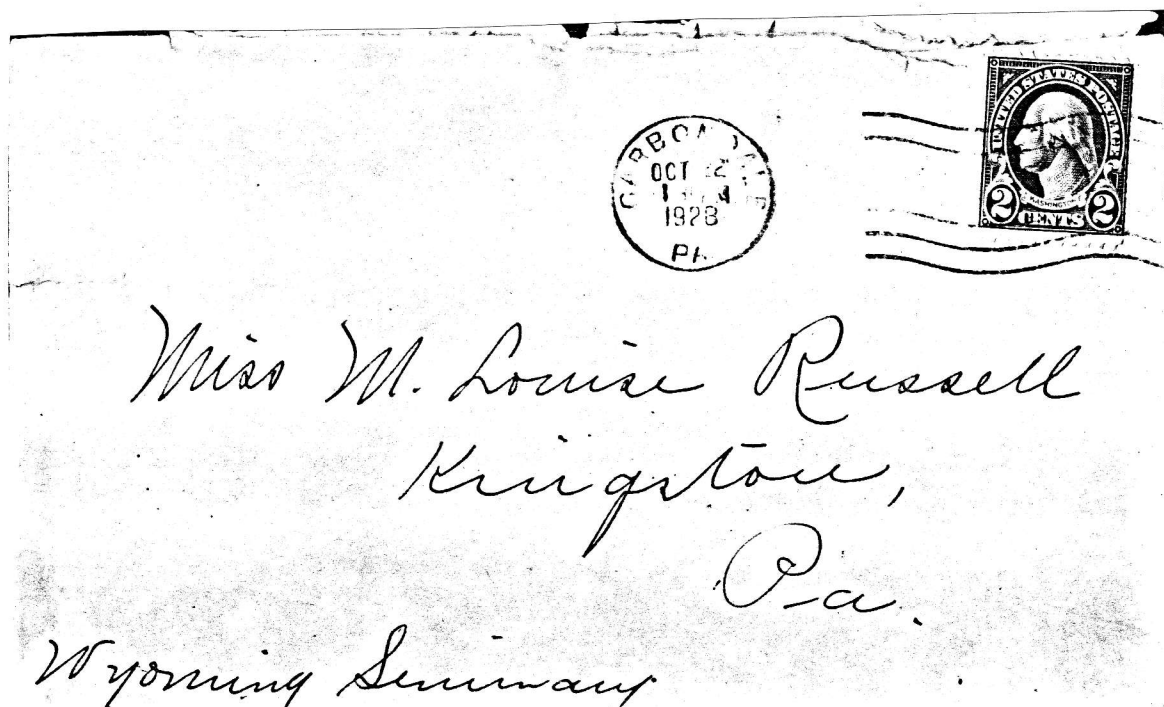 CARBONDALE
OCT 22
1928
PA
UNITED STATES POSTAGE
WASHINGTON
2 CENTS 2
Miss M. Louise Russell
Kingston,
Pa.
Wyoming Seminary